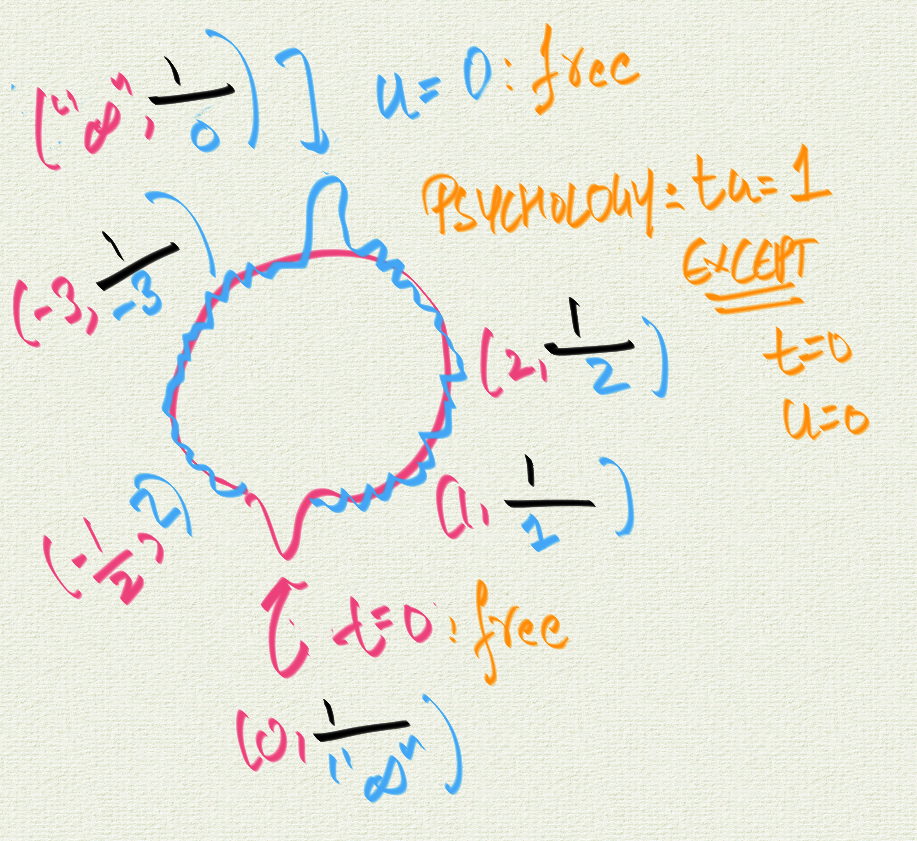 ("∞", 1/0) ] u = 0 : free
PSYCHOLOGY : tu = 1
EXCEPT
t = 0
u = 0
(-3, 1/-3)
(2, 1/2)
(1, 1/1)
(-1/2, 2)
[ t = 0 : free
(0, 1/"∞")